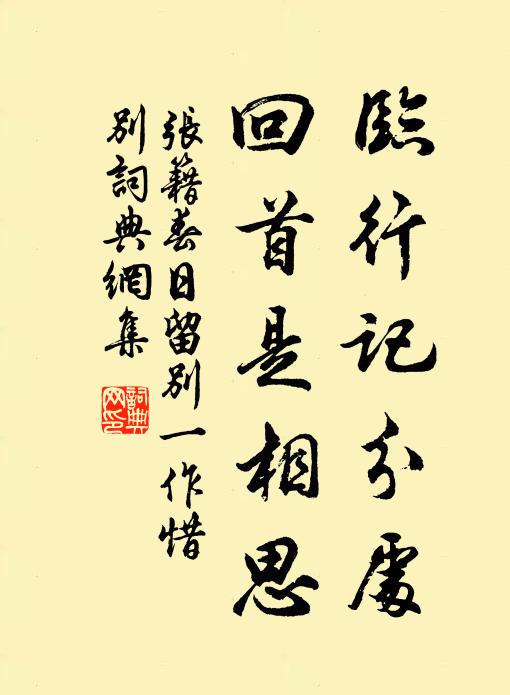 臨行記分處
回首是相思
張籍春日留別一作惜
別詞典網集
詞典
网印